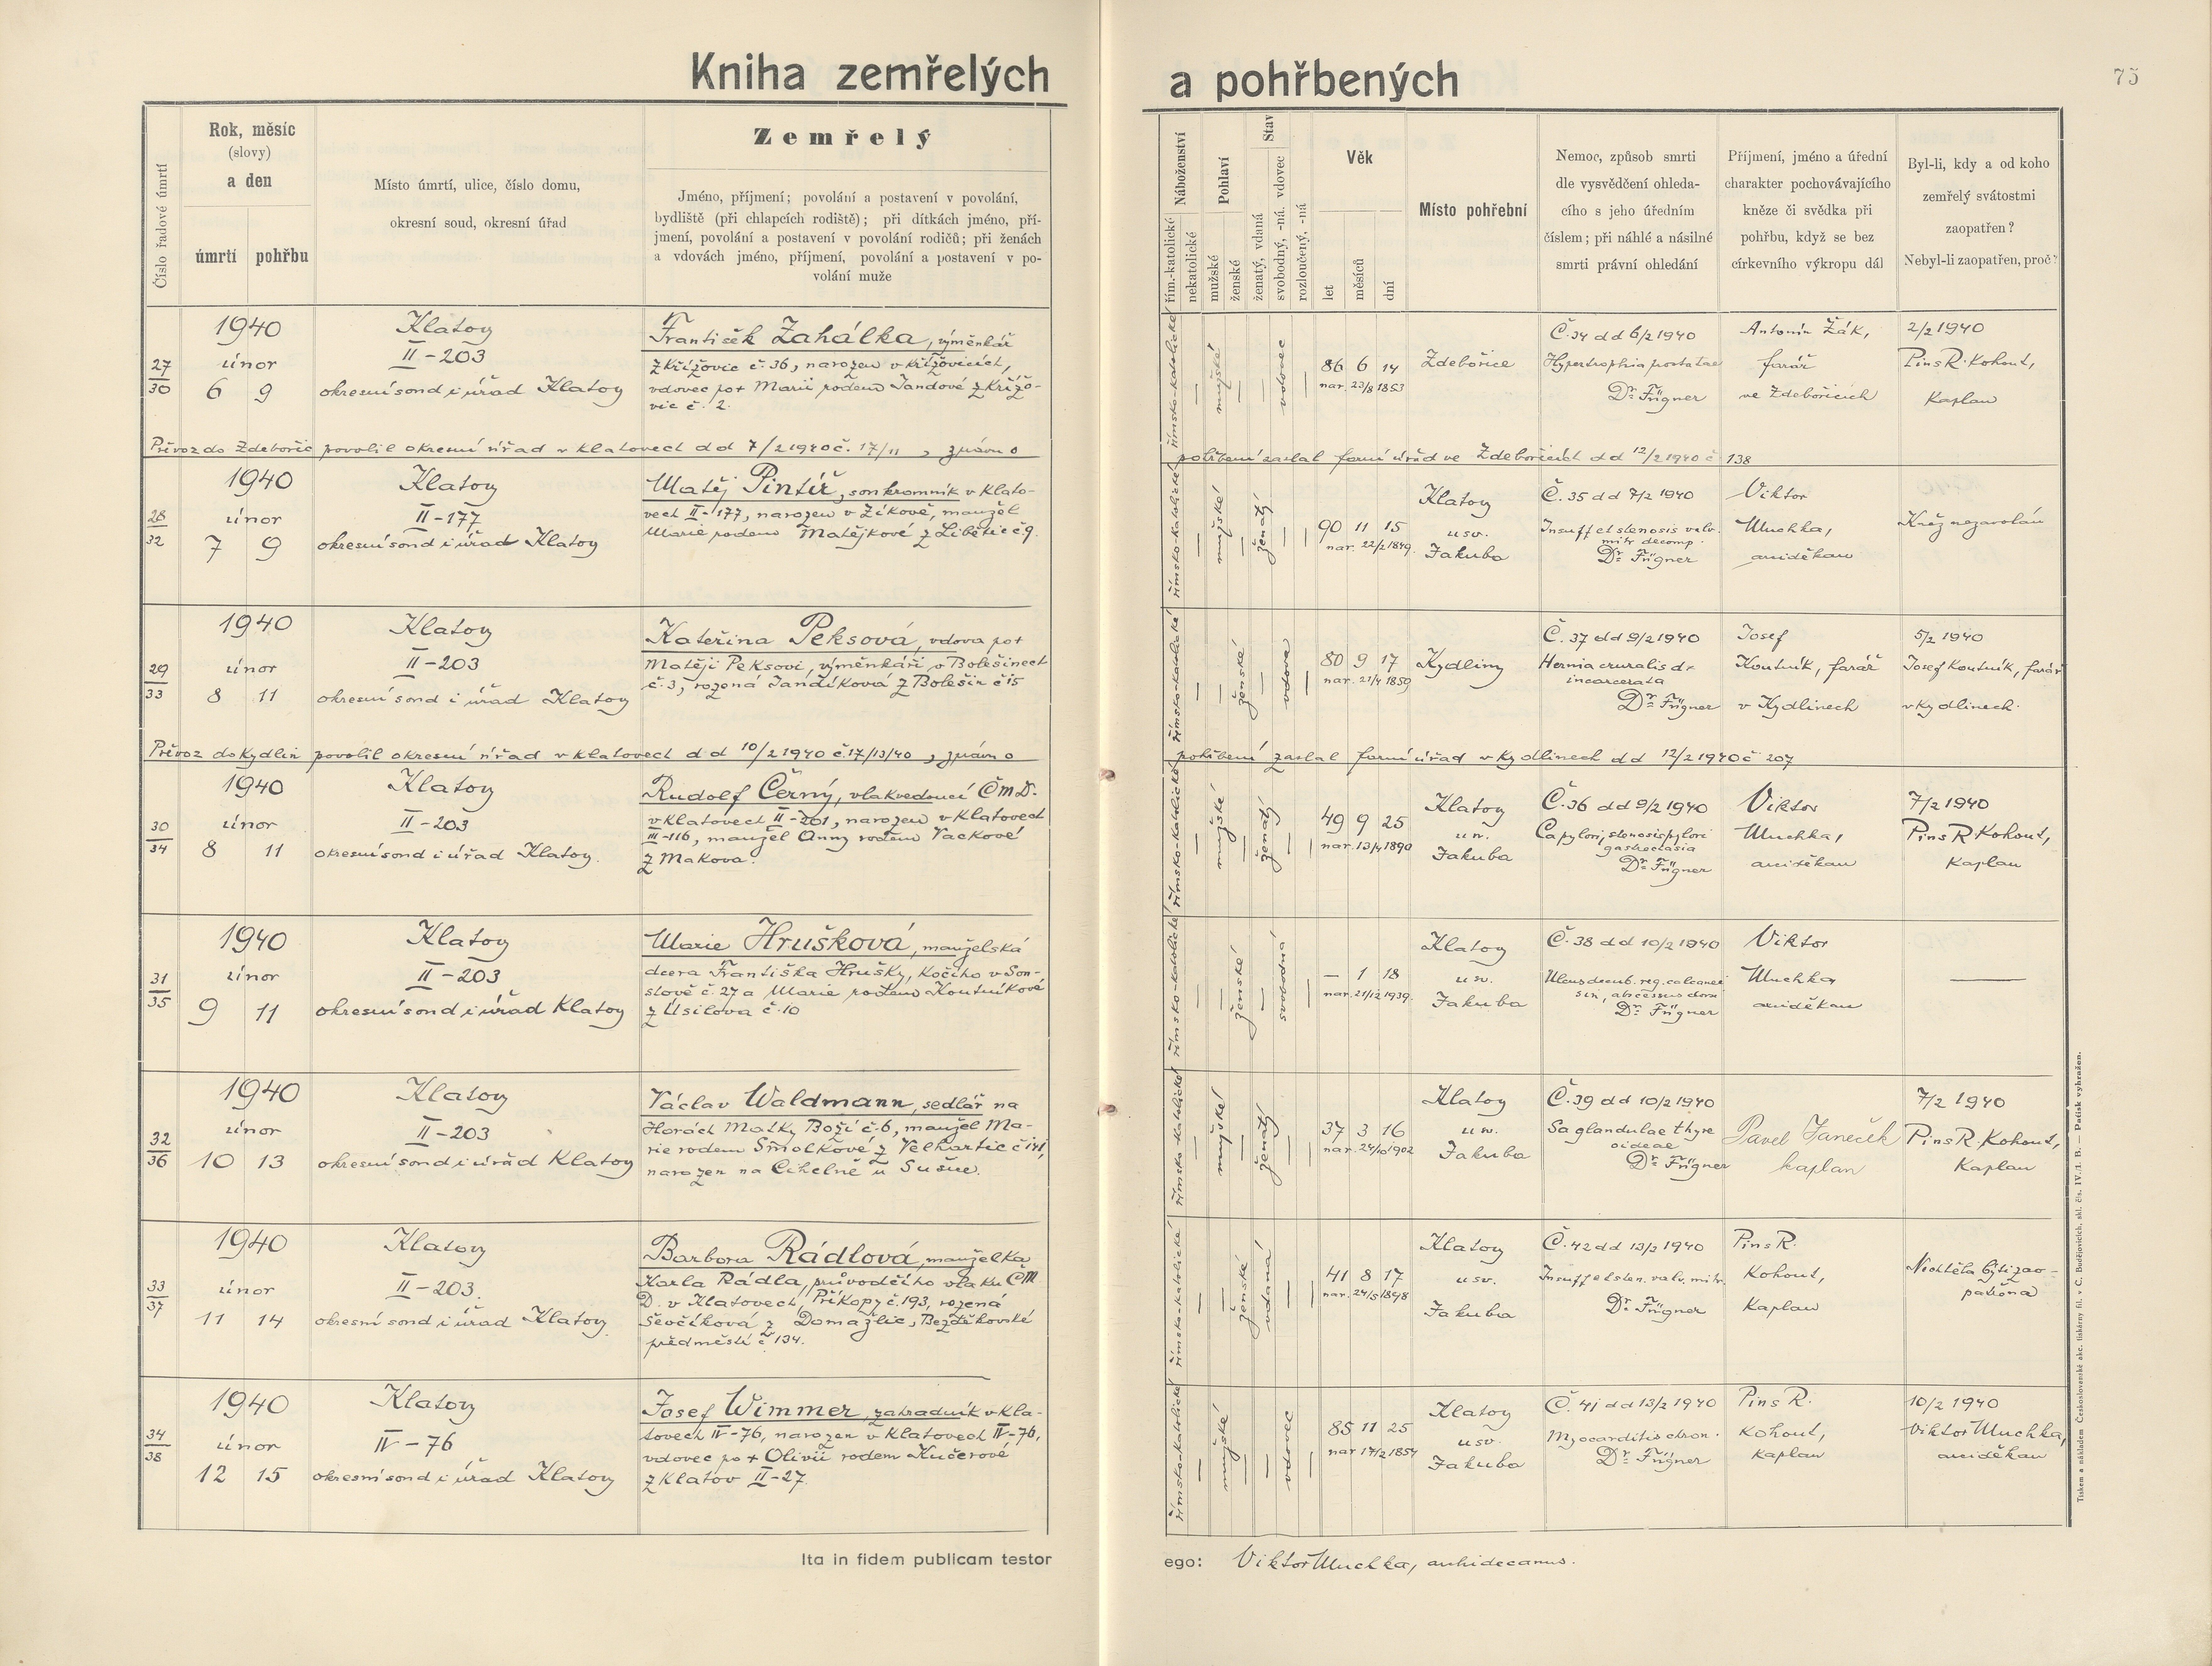 Kniha zemřelých a pohřbených
75
Číslo řadové úmrtí
Rok, měsíc
(slovy)
a den
úmrtí pohřbu
Místo úmrtí, ulice, číslo domu,
okresní soud, okresní úřad
Zemřelý
Jméno, příjmení; povolání a postavení v povolání,
bydliště (při chlapcích rodiště); při dítkách jméno, pří-
jmení, povolání a postavení v povolání rodičů; při ženách
a vdovách jméno, příjmení, povolání a postavení v po-
volání muže
Náboženství
řím.-katolické
nekatolické
Pohlaví
mužské
ženské
Stav
ženatý, vdaná
svobodný, -ná. vdovec
rozloučený, -ná
Věk
let
měsíců
dní
Místo pohřební
Nemoc, způsob smrti
dle vysvědčení ohleda-
cího s jeho úředním
číslem; při náhlé a násilné
smrti právní ohledání
Příjmení, jméno a úřední
charakter pochovávajícího
kněze či svědka při
pohřbu, když se bez
církevního výkropu dál
Byl-li, kdy a od koho
zemřelý svátostmi
zaopatřen?
Nebyl-li zaopatřen, proč?
27
30
1940
únor
6 9
Klatovy
II-203
okresní soud i úřad Klatovy
František Zahálka, výměnkář
z Křížovic č. 36, narozen v Křížovicích,
vdovec po + Marii rodem Jandové z Křížo-
vic č. 2.
římsko-katolické
mužské
vdovec
86 6 14
nar. 23/8 1853
Zdebořice
Č. 34 dd 6/2 1940
Hypertrophia prostatae
Dr. Fügner
Antonín Žák,
farář
ve Zdebořicích
2/2 1940
Pius R. Kohout,
Kaplan
Převoz do Zdebořic povolil okresní úřad v Klatovech dd 7/2 1940 č. 17/11, zprávu o
pohřbení zaslal farní úřad ve Zdebořicích dd 12/2 1940 č 138
28
32
1940
únor
7 9
Klatovy
II-177
okresní soud i úřad Klatovy
Matěj Pintíř, soukromník v Klato-
vech II-177, narozen v Žikově, manžel
Marie rodem Matějkové z Libětic č 9.
římsko-katolické
mužské
ženatý
90 11 15
nar. 22/2 1849.
Klatovy
u sv.
Jakuba
Č. 35 dd 7/2 1940
Insuff et stenosis valv.
mitr decomp.
Dr. Fügner
Viktor
Muchka,
arciděkan
Kněz nezavolán
29
33
1940
únor
8 11
Klatovy
II-203
okresní soud i úřad Klatovy
Kateřina Peksová, vdova po +
Matěji Peksovi, výměnkáři v Bolešinech
č. 3, rozená Jandíková z Bolešin č 15
římsko-katolické
ženské
vdova
80 9 17
nar. 21/4 1859
Kydliny
Č. 37 dd 9/2 1940
Hernia cruralis dx
incarcerata
Dr. Fügner
Josef
Koutník, farář
v Kydlinech
5/2 1940
Josef Koutník, farář
v Kydlinech.
Převoz do Kydlin povolil okresní úřad v Klatovech dd 10/2 1940 č. 17/13/40, zprávu o
pohřbení zaslal farní úřad v Kydlinech dd 12/2 1940 č 207
30
34
1940
únor
8 11
Klatovy
II-203
okresní soud i úřad Klatovy.
Rudolf Černý, vlakvedoucí ČMD.
v Klatovech II-201, narozen v Klatovech
III-116, manžel Anny rodem Vackové
z Makova.
římsko-katolické
mužské
ženatý
49 9 25
nar. 13/4 1890
Klatovy
u sv.
Jakuba
Č. 36 dd 9/2 1940
Ca pylori, stenosis pylori
gastrectasia
Dr. Fügner
Viktor
Muchka,
arciděkan
7/2 1940
Pius R Kohout,
Kaplan
31
35
1940
únor
9 11
Klatovy
II-203
okresní soud i úřad Klatovy
Marie Hrušková, manželská
dcera Františka Hrušky, Kočího v Son-
slově č. 27 a Marie rodem Koutníkové
z Úsilova č. 10
římsko-katolické
ženské
svobodná
— 1 18
nar. 21/12 1939.
Klatovy
u sv.
Jakuba
Č. 38 dd 10/2 1940
Ulcus decub. reg. calcanei
sin, abscessus dorsi
Dr. Fügner
Viktor
Muchka
arciděkan
32
36
1940
únor
10 13
Klatovy
II-203
okresní soud i úřad Klatovy
Václav Waldmann, sedlář na
Horách Matky Boží č. 6, manžel Ma-
rie rodem Smolkové z Velhartic č 141,
narozen na Cihelně u Sušice.
římsko-katolické
mužské
ženatý
37 3 16
nar. 24/10 1902
Klatovy
u sv.
Jakuba
Č. 39 dd 10/2 1940
Sa glandulae thyre
oideae
Dr. Fügner
Pavel Janeček
kaplan
7/2 1940
Pius R. Kohout,
Kaplan
33
37
1940
únor
11 14
Klatovy
II-203.
okresní soud i úřad Klatovy.
Barbora Rádlová, manželka
Karla Rádla, průvodčího vlaku ČM
D. v Klatovech, Příkopy č. 193, rozená
Ševčíková z Domažlic, Bezděkovské
předměstí č 134.
římsko-katolické
ženské
vdaná
41 8 17
nar. 24/5 1898
Klatovy
u sv.
Jakuba
Č. 42 dd 13/2 1940
Insuff et sten. valv. mitr.
Dr. Fügner
Pius R.
Kohout,
Kaplan
Nechtěla býti zao-
patřena
34
38
1940
únor
12 15
Klatovy
IV-76
okresní soud i úřad Klatovy
Josef Wimmer, zahradník v Kla-
tovech IV-76, narozen v Klatovech IV-76,
vdovec po + Olivii rodem Kučerové
z Klatov II-27.
římsko-katolické
mužské
vdovec
85 11 25
nar 17/2 1854
Klatovy
u sv.
Jakuba
Č. 41 dd 13/2 1940
Myocarditis chron.
Dr. Fügner
Pius R.
Kohout,
Kaplan
10/2 1940
Viktor Muchka,
arciděkan
Ita in fidem publicam testor ego: Viktor Muchka, archidecanus.
Tiskem a nákladem Českoslovanské akc. tiskárny fil. v Č. Budějovicích, skl. čís. IV./1. B. — Patisk vyhražen.